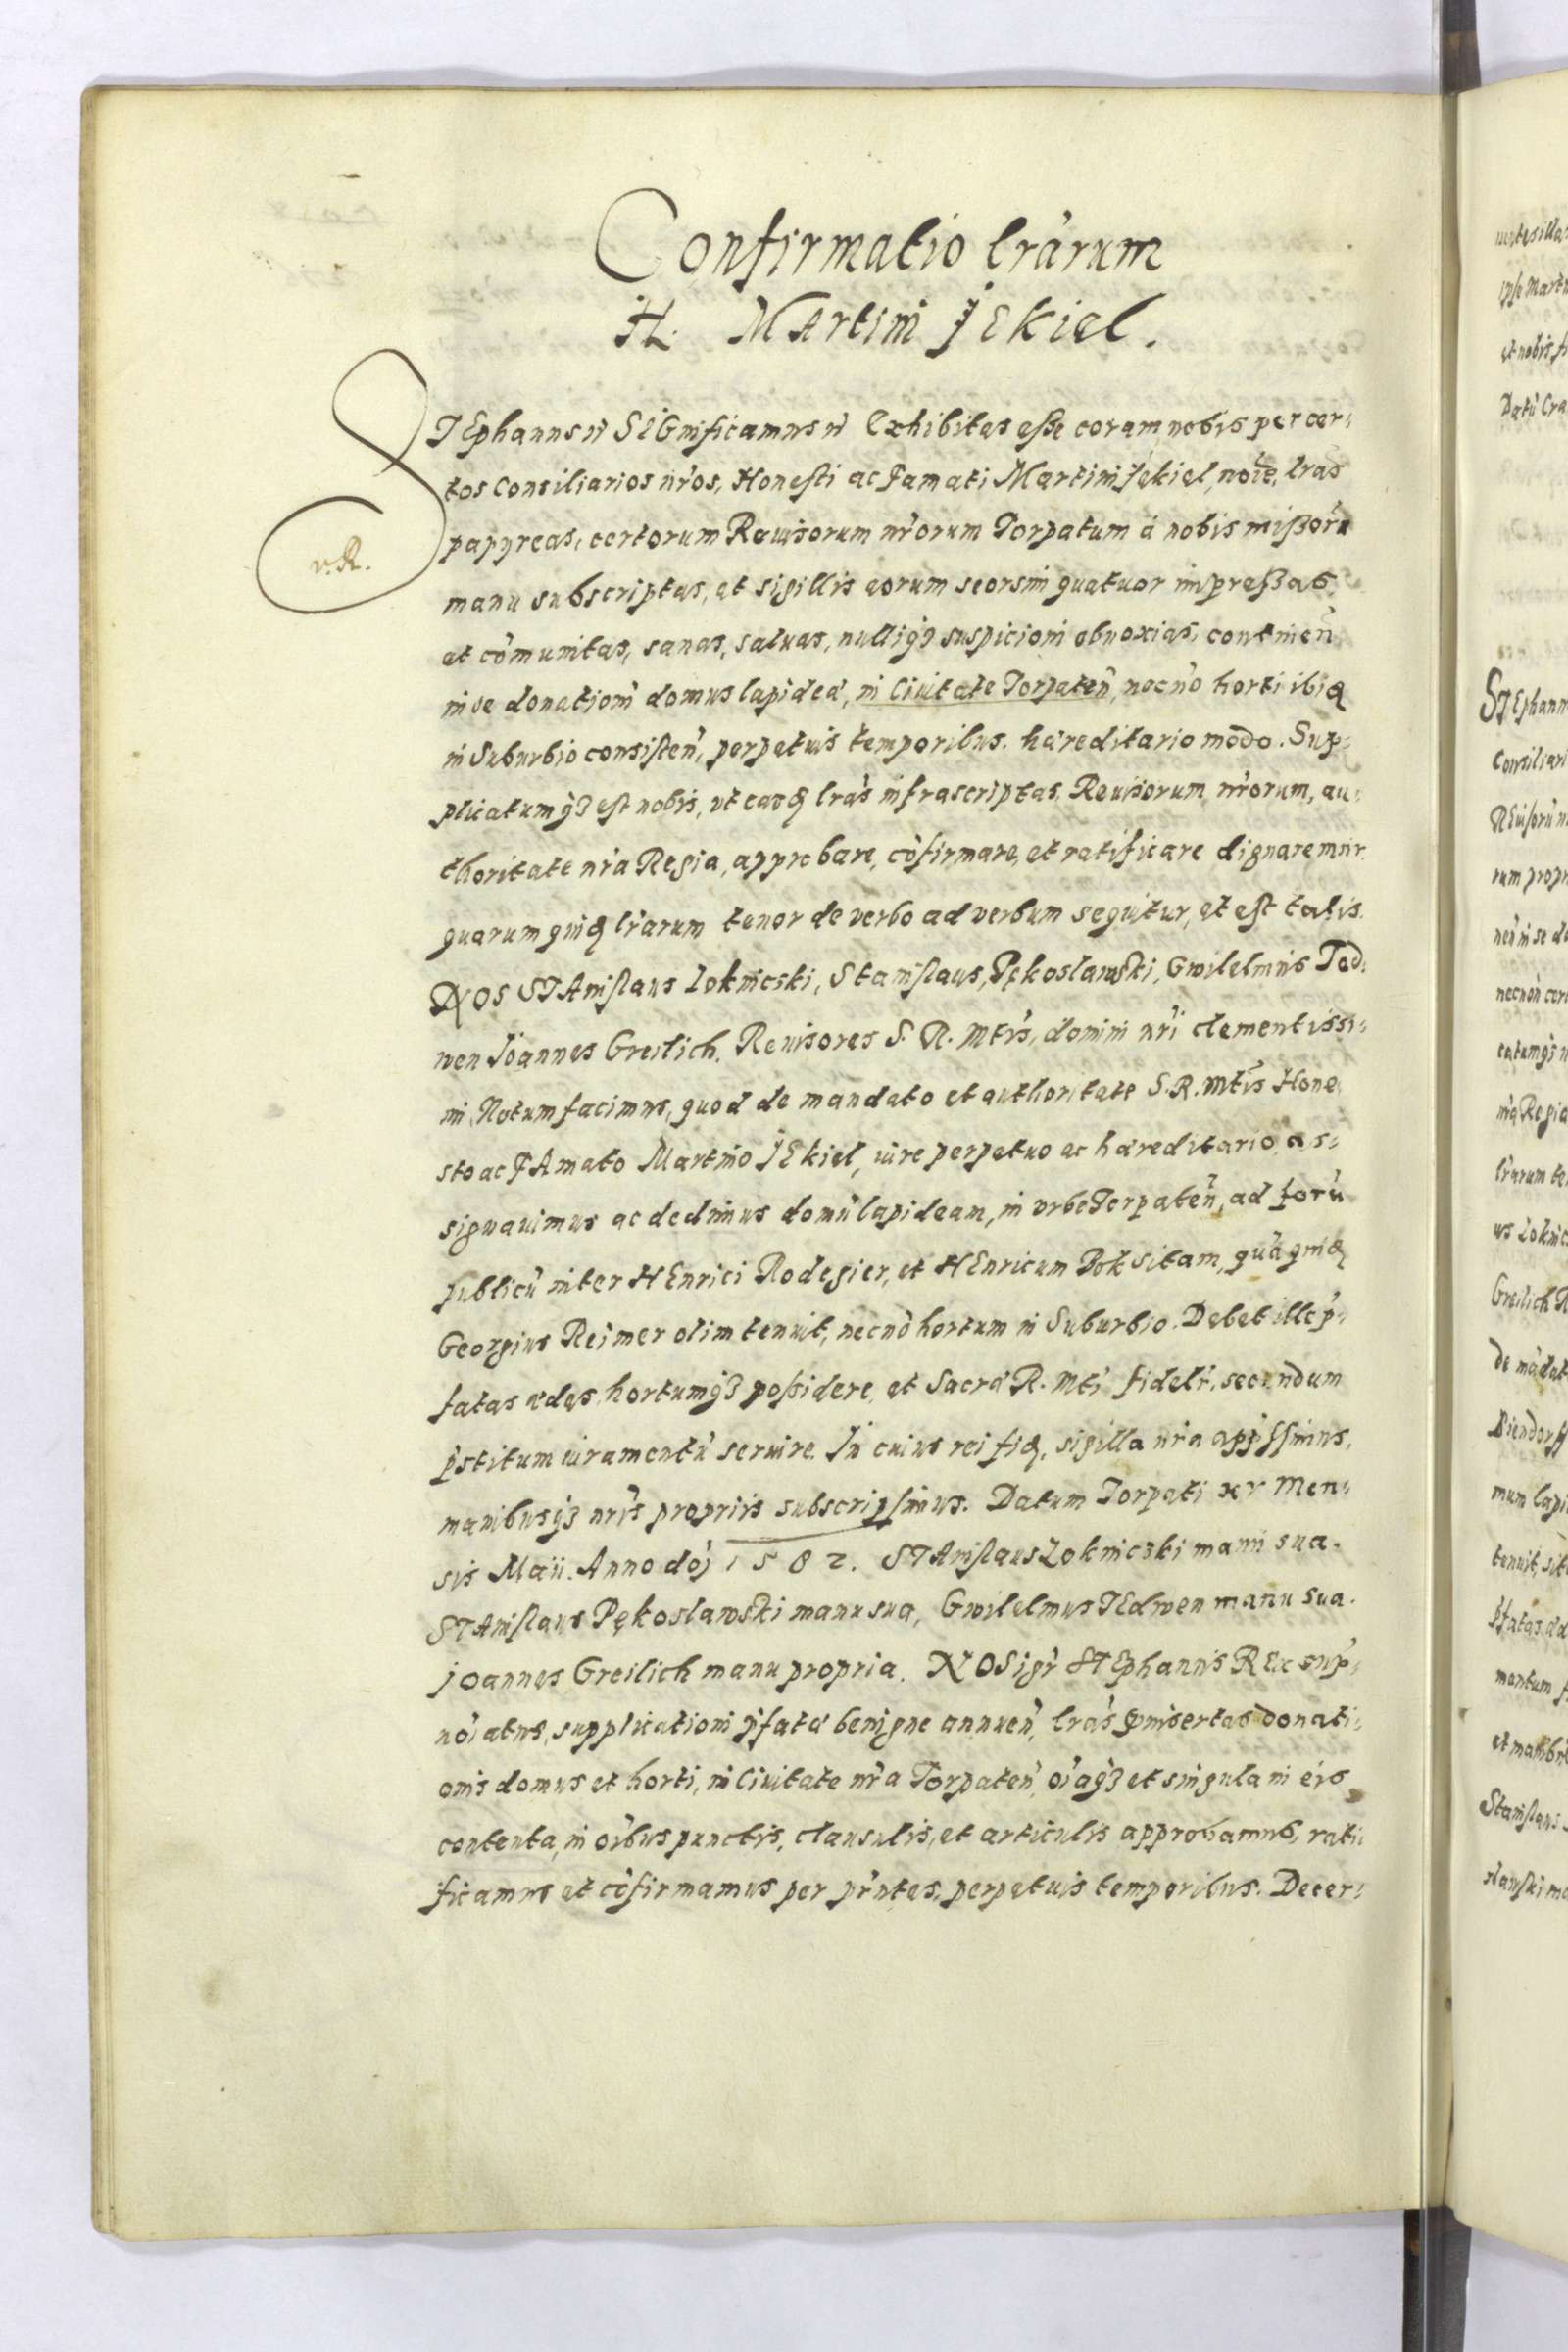 Confirmatio lr̃arum
H. MArtini jEkiel.
STEphanus ñ SIGnificamus ñ Exhibitas esse coram nobis per cer-
tos Consiliarios nr̃os, Honesti ac Famati Martini jekiel, noĩe, lr̃as
papyreas, certorum Reuisorum nr̃orum Torpatum à nobis missorũ
v.R.
manu subscriptas, et sigillis eorum seorsim quatuor impressas
et cõmunitas, sanas, saluas, nulliq3 suspicioni obnoxias, continen̄
in se donationẽ domus lapideæ, in Ciuitate Torpaten̄, necnõ horti ibid
in Suburbio consisten̄, perpetuis temporibus. hæreditario modo. Sup-
plicatumq3 est nobis, vt easd lr̃as infrascriptas Reuisorum nr̃orum, au-
thoritate nr̃a Regia, approbare, cõfirmare, et ratificare dignaremur.
quarum quid lr̃arum tenor de verbo ad verbum sequitur, et est talis.
NOS STAnislaus Loknicski, Stanislaus, Pękoslawski, Gwilelmus Ted-
wen Joannes Greilich. Reuisores S. R. Mtĩs, domini nr̃i clementissi-
mi, Notum facimus, quod de mandato et authoritate S. R. Mtĩs Hone
sto ac FAmato Martino jEkiel, iure perpetuo ac hæreditario as-
signauimus ac dedimus domũ lapideam, in vrbe Torpaten̄, ad forũ
publicũ inter HEnrici Rodegier, et HEnricum Bok sitam, quã quid
Georgius Reimer olim tenuit, necnõ hortum in Suburbio. Debet ille p̃-
fatas ædes, hortumq3 possidere, et Sacræ R. Mtĩ fidelr̃, secundum
p̃stitum iuramentũ seruire. In cuius rei fid, sigilla nr̃a appissimus,
manibusq3 nr̃is propriis subscripsimus. Datum Torpati xv Men-
sis Maii. Anno dõj 1582. STAnislaus Lokniczki mani sua.
STAnislaus Pękoslawski manu sua, Gwilelmus TEdwen manu sua.
jOannes Greilich manu propria. NOS igr̃ STEphanus REx sup̃-
noĩatus, supplicationi p̃fatæ benigne annuen̄, lr̃as p̃insertas donati-
onis domus et horti, in Ciuitate nr̃a Torpaten̄, oĩaq3 et singula in eis
contenta, in oĩbus punctis, clausulis, et articulis approbamus, rati-
ficamus et cõfirmamus per pr̃ntes, perpetuis temporibus. Decer-